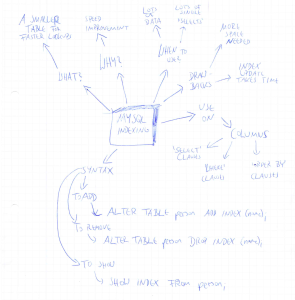 A SMALLER
TABLE FOR
FASTER LOOKUPS
SPEED
IMPROVEMENT
LOTS
OF
DATA
LOTS OF
SIMPLE
"SELECTS"
MORE
SPACE
NEEDED
WHAT?
WHY?
WHEN TO
USE?
DRAW-
BACKS
INDEX
UPDATE
TAKES TIME
MYSQL
INDEXING
USE
ON
COLUMNS
"SELECT"
CLAUSE
"WHERE"
CLAUSE
"ORDER BY"
CLAUSES
SYNTAX
TO ADD
ALTER TABLE person ADD INDEX (name);
TO REMOVE
ALTER TABLE person DROP INDEX (name);
TO SHOW
SHOW INDEX FROM person;